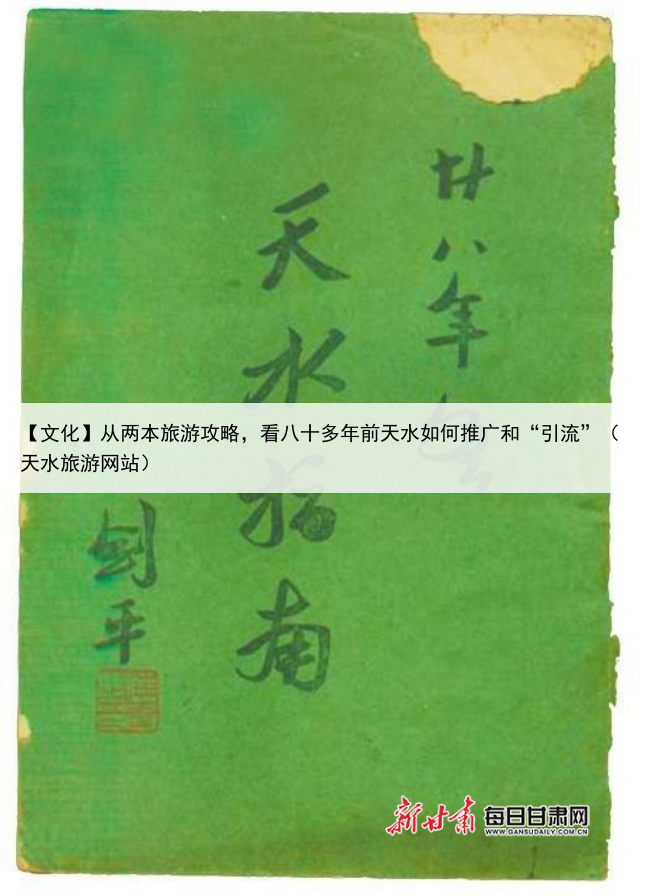 廿八年
天水指南
剑平
【文化】从两本旅游攻略，看八十多年前天水如何推广和“引流”（
天水旅游网站）
新甘肃 每日甘肃网
WWW.GANSUDAILY.COM.CN